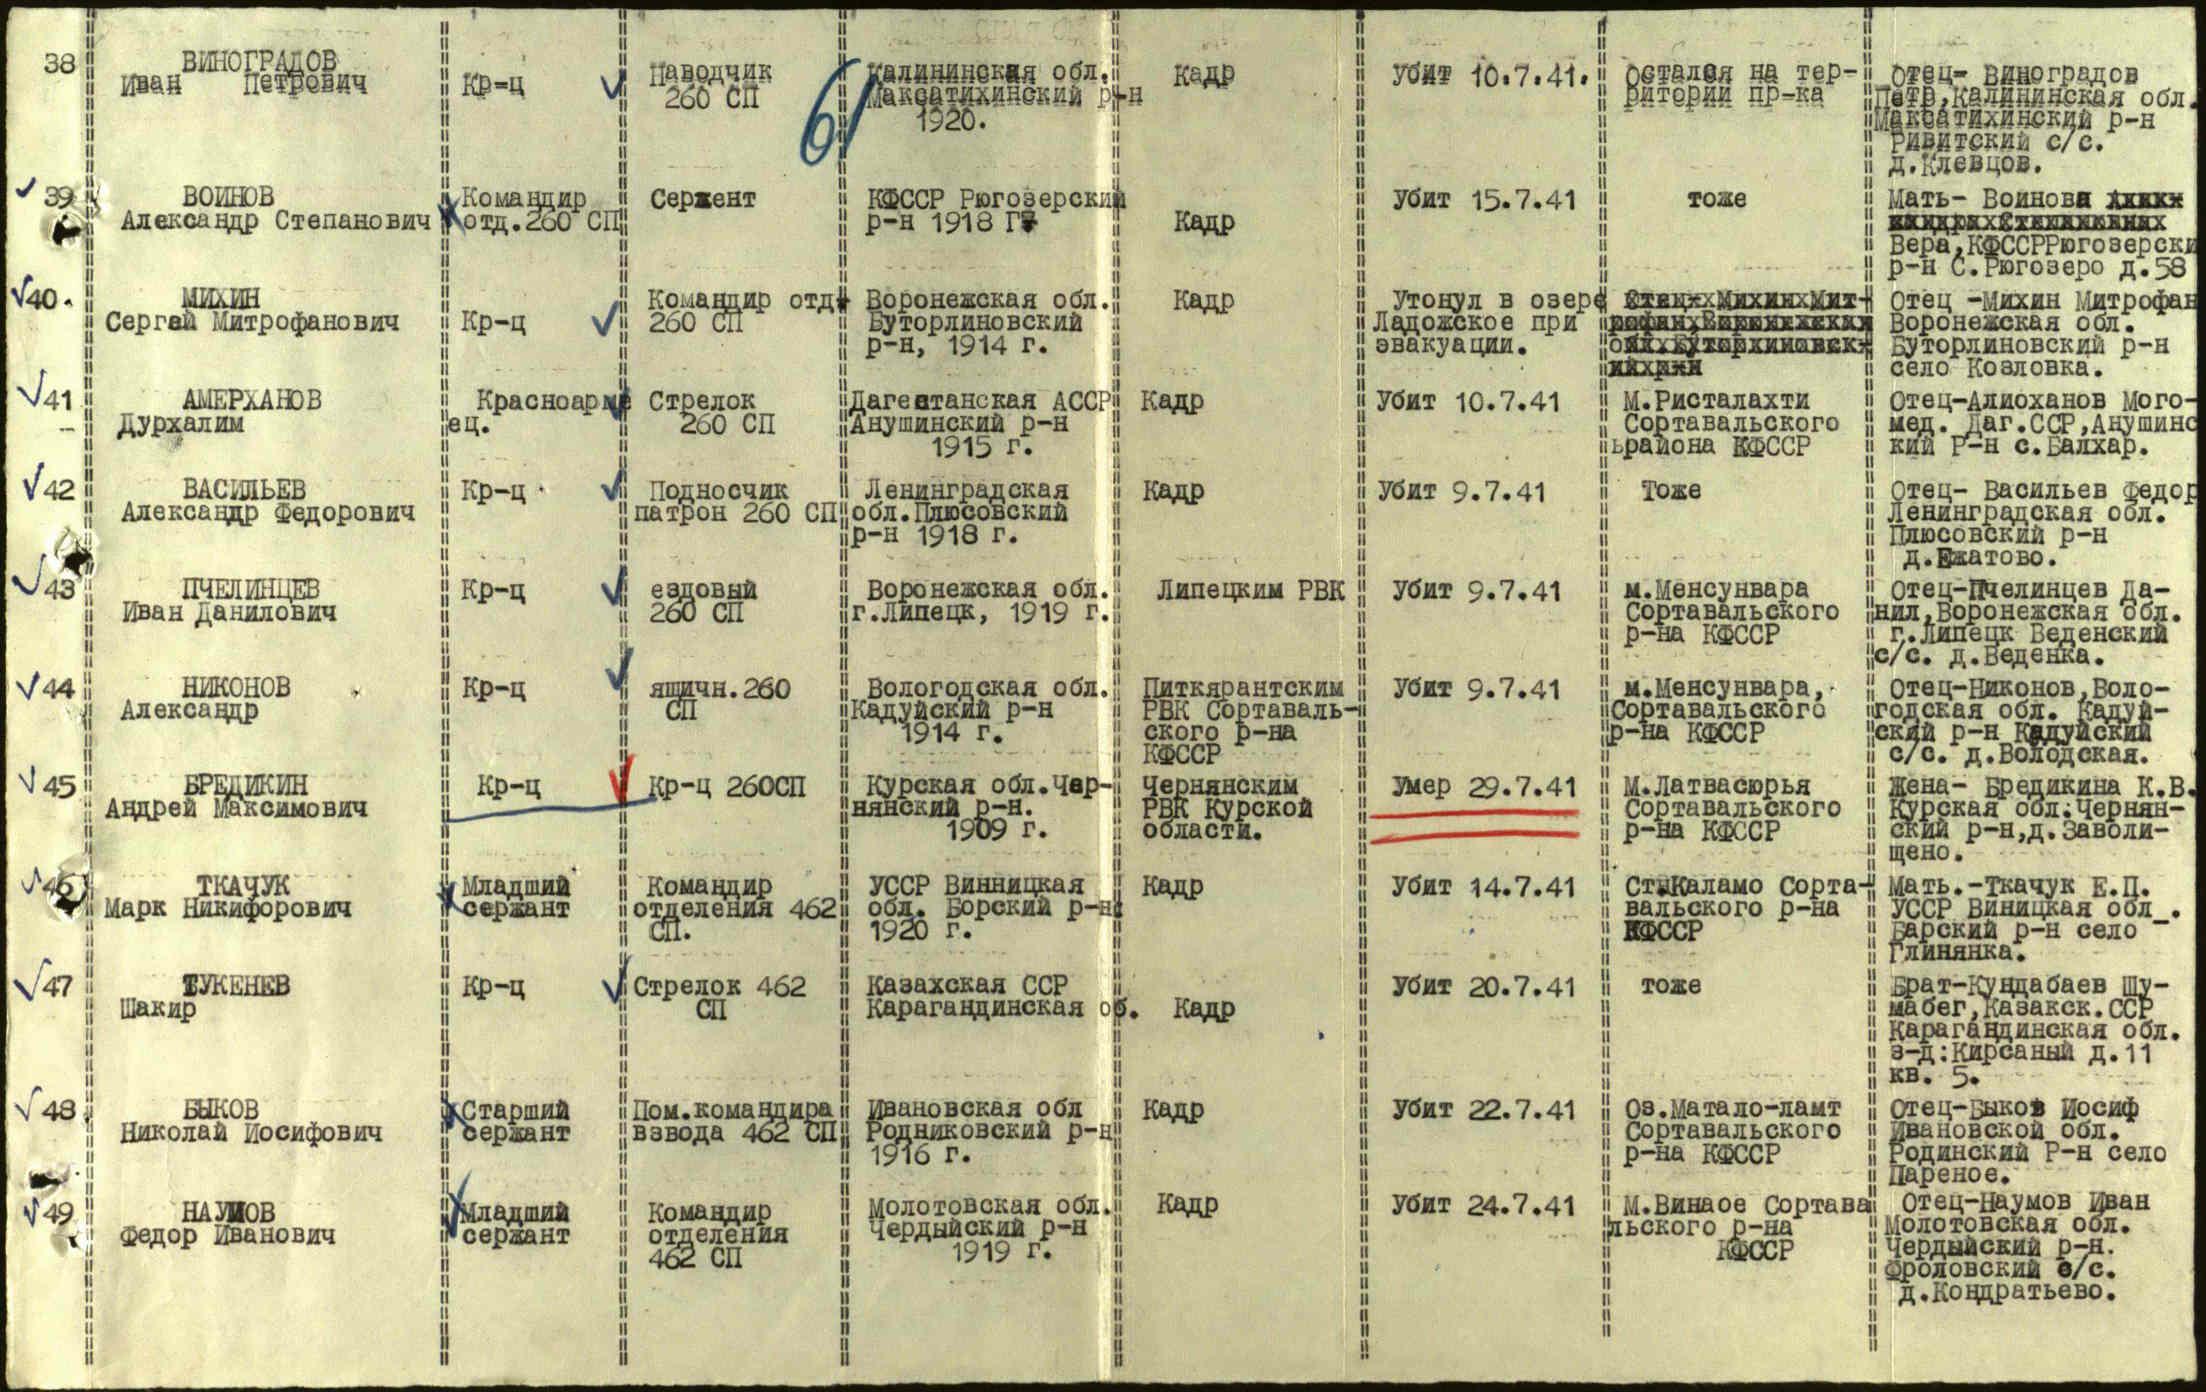 38
ВИНОГРАДОВ
Иван Петрович
Кр-ц
Наводчик
260 СП
61
Калининская обл.
Максатихинский р-н
1920.
Кадр
Убит 10.7.41.
Остался на тер-
ритории пр-ка
Отец- Виноградов
Петр,Калининская обл.
Максатихинский р-н
Ривитский с/с.
д.Клевцов.
39
ВОИНОВ
Александр Степанович
Командир
отд.260 СП
Сержент
КФССР Рюгозерский
р-н 1918 Г
Кадр
Убит 15.7.41
тоже
Мать- Воинова
Вера,КФССРРюгозерски
р-н С.Рюгозеро д.58
40.
МИХИН
Сергей Митрофанович
Кр-ц
Командир отд.
260 СП
Воронежская обл.
Буторлиновский
р-н, 1914 г.
Кадр
Утонул в озере
Ладожское при
эвакуации.
Отец -Михин Митрофан
Воронежская обл.
Буторлиновский р-н
село Козловка.
41
АМЕРХАНОВ
Дурхалим
Красноарме
ец.
Стрелок
260 СП
Дагестанская АССР
Анушинский р-н
1915 г.
Кадр
Убит 10.7.41
М.Ристалахти
Сортавальского
района КФССР
Отец-Алиоханов Мого-
мед. Даг.ССР,Анушинс
кий Р-н с.Балхар.
42
ВАСИЛЬЕВ
Александр Федорович
Кр-ц
Подносчик
патрон 260 СП
Ленинградская
обл.Плюсовский
р-н 1918 г.
Кадр
Убит 9.7.41
Тоже
Отец- Васильев Федор
Ленинградская обл.
Плюсовский р-н
д.Ежатово.
43
ПЧЕЛИНЦЕВ
Иван Данилович
Кр-ц
ездовый
260 СП
Воронежская обл.
г.Липецк, 1919 г.
Липецким РВК
Убит 9.7.41
м.Менсунвара
Сортавальского
р-на КФССР
Отец-Пчелинцев Да-
нил,Воронежская обл.
г.Липецк Веденский
с/с. д.Веденка.
44
НИКОНОВ
Александр
Кр-ц
ящичн.260
СП
Вологодская обл.
Кадуйский р-н
1914 г.
Питкярантским
РВК Сортаваль-
ского р-на
КФССР
Убит 9.7.41
м.Менсунвара,
Сортавальского
р-на КФССР
Отец-Никонов,Воло-
годская обл. Кадуй-
ский р-н Кадуйский
с/с. д.Володская.
45
БРЕДИКИН
Андрей Максимович
Кр-ц
Кр-ц 260СП
Курская обл.Чер-
нянский р-н.
1909 г.
Чернянским
РВК Курской
области.
Умер 29.7.41
М.Латвасюрья
Сортавальского
р-на КФССР
Жена- Бредикина К.В.
Курская обл.Чернян-
ский р-н,д.Заволи-
щено.
46
ТКАЧУК
Марк Никифорович
Младший
сержант
Командир
отделения 462
СП.
УССР Винницкая
обл. Борский р-н
1920 г.
Кадр
Убит 14.7.41
Ст.Каламо Сорта-
вальского р-на
КФССР
Мать.-Ткачук Е.П.
УССР Виницкая обл .
Барский р-н село
Глинянка.
47
ТУКЕНЕВ
Шакир
Кр-ц
Стрелок 462
СП
Казахская ССР
Карагандинская об.
Кадр
Убит 20.7.41
тоже
Брат-Кундабаев Шу-
мабег,Казакск.ССР
Карагандинская обл.
з-д:Кирсаный д.11
кв. 5.
48
БЫКОВ
Николай Иосифович
Старший
сержант
Пом.командира
взвода 462 СП
Ивановская обл
Родниковский р-н
1916 г.
Кадр
Убит 22.7.41
Оз.Матало-ламт
Сортавальского
р-на КФССР
Отец-Быков Иосиф
Ивановской обл.
Родинский Р-н село
Пареное.
49
НАУМОВ
Федор Иванович
Младший
сержант
Командир
отделения
462 СП
Молотовская обл.
Чердыйский р-н
1919 г.
Кадр
Убит 24.7.41
М.Винаое Сортава
льского р-на
КФССР
Отец-Наумов Иван
Молотовская обл.
Чердыйский р-н.
Фроловский с/с.
д.Кондратьево.